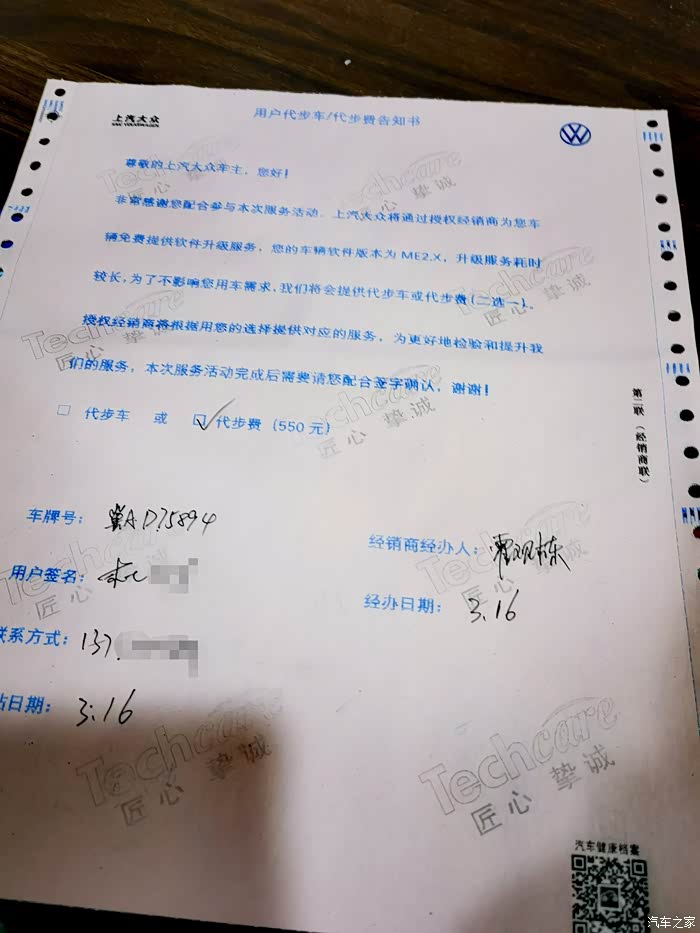 上汽大众
SAIC VOLKSWAGEN
用户代步车/代步费告知书
尊敬的上汽大众车主，您好！
非常感谢您配合参与本次服务活动。上汽大众将通过授权经销商为您车
辆免费提供软件升级服务，您的车辆软件版本为 ME2.X，升级服务耗时
较长，为了不影响您用车需求，我们将会提供代步车或代步费(二选一)。
授权经销商将根据用您的选择提供对应的服务，为更好地检验和提升我
们的服务，本次服务活动完成后需要请您配合签字确认，谢谢！
代步车 或 代步费（550 元）
第二联（经销商联）
车牌号：冀A.D75894
经销商经办人：
用户签名：
经办日期：3.16
联系方式：137.
站日期：3.16
Techcare
匠心 挚诚
Techcare
匠心 挚诚
Techcare
匠心 挚诚
Techcare
匠心 挚诚
Techcare
匠心 挚诚
Techcare
匠心 挚诚
Techcare
匠心 挚诚
Techcare
匠心 挚诚
Techcare
匠心 挚诚
汽车健康档案
汽车之家